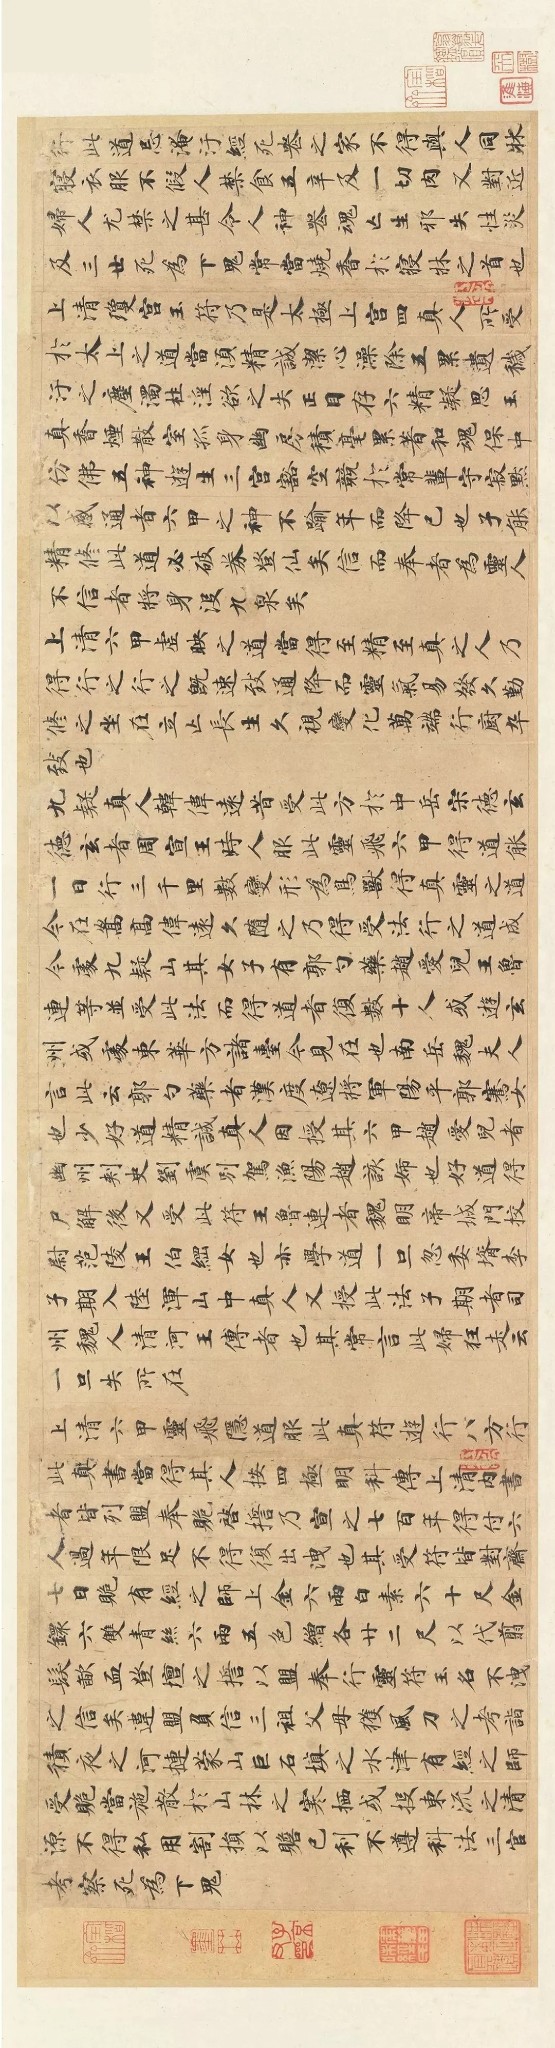 行此道忌淹汙經死喪之家不得與人同牀
寢衣服不假人禁食五辛及一切肉又對近
婦人尤禁之甚令人神喪魂亡生邪失性災
及三世死為下鬼常當燒香於寢牀之首也
上清瓊宮玉符乃是太極上宮四真人所受
於太上之道當須精誠潔心澡除五累遺穢
汙之塵濁杜淫欲之失正目存六精凝思玉
真香煙散室孤身幽房積毫累著和魂保中
仿佛五神遊生三宮豁空競於常輩守寂默
以感通者六甲之神不踰年而降已也子能
精修此道必破券登仙矣信而奉者為靈人
不信者將身沒九泉矣
上清六甲虛映之道當得至精至真之人乃
得行之行之既速致通降而靈氣易發久勤
修之坐在立亡長生久視變化萬端行廚卒
致也
九疑真人韓偉遠昔受此方於中岳宋德玄
德玄者周宣王時人服此靈飛六甲得道能
一日行三千里數變形為鳥獸得真靈之道
今在嵩高偉遠久隨之乃得受法行之道成
今處九疑山其女子有郭勺藥趙愛兒王魯
連等並受此法而得道者復數十人或遊玄
州或處東華方諸臺今見在也南岳魏夫人
言此云郭勺藥者漢度遼將軍陽平郭騫女
也少好道精誠真人因授其六甲趙愛兒者
幽州刺史劉虞別駕漁陽趙該姊也好道得
尸解後又受此符王魯連者魏明帝城門校
尉范陵王伯綱女也亦學道一旦忽委壻李
子期入陸渾山中真人又授此法子期者司
州魏人清河王傅者也其常言此婦狂走云
一旦失所在
上清六甲靈飛隱道服此真符遊行八方行
此真書當得其人按四極明科傳上清內書
者皆列盟奉跪啓擔乃宣之七百年得付六
人過年限足不得復出洩也其受符皆對齋
七日跪有經之師上金六兩白素六十尺金
鐶六雙青絲六兩五色繒各廿二尺以代翦
髮歃血登壇之擔以盟奉行靈符玉名不洩
之信矣違盟負信三祖父母獲風刀之考詣
積夜之河搪蒙山巨石填之水津有經之師
受跪當施散於山林之寒栖或投東流之清
源不得私用割損以贍己利不遵科法三官
考察死為下鬼